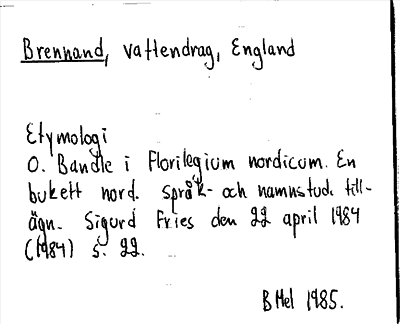 Brennand, vattendrag, England
Etymologi
O. Bandle i Florilegium nordicum. En
bukett nord. språk- och namnstud. till-
ägn. Sigurd Fries den 22 april 1984
(1984) s. 22.
B Hel 1985.